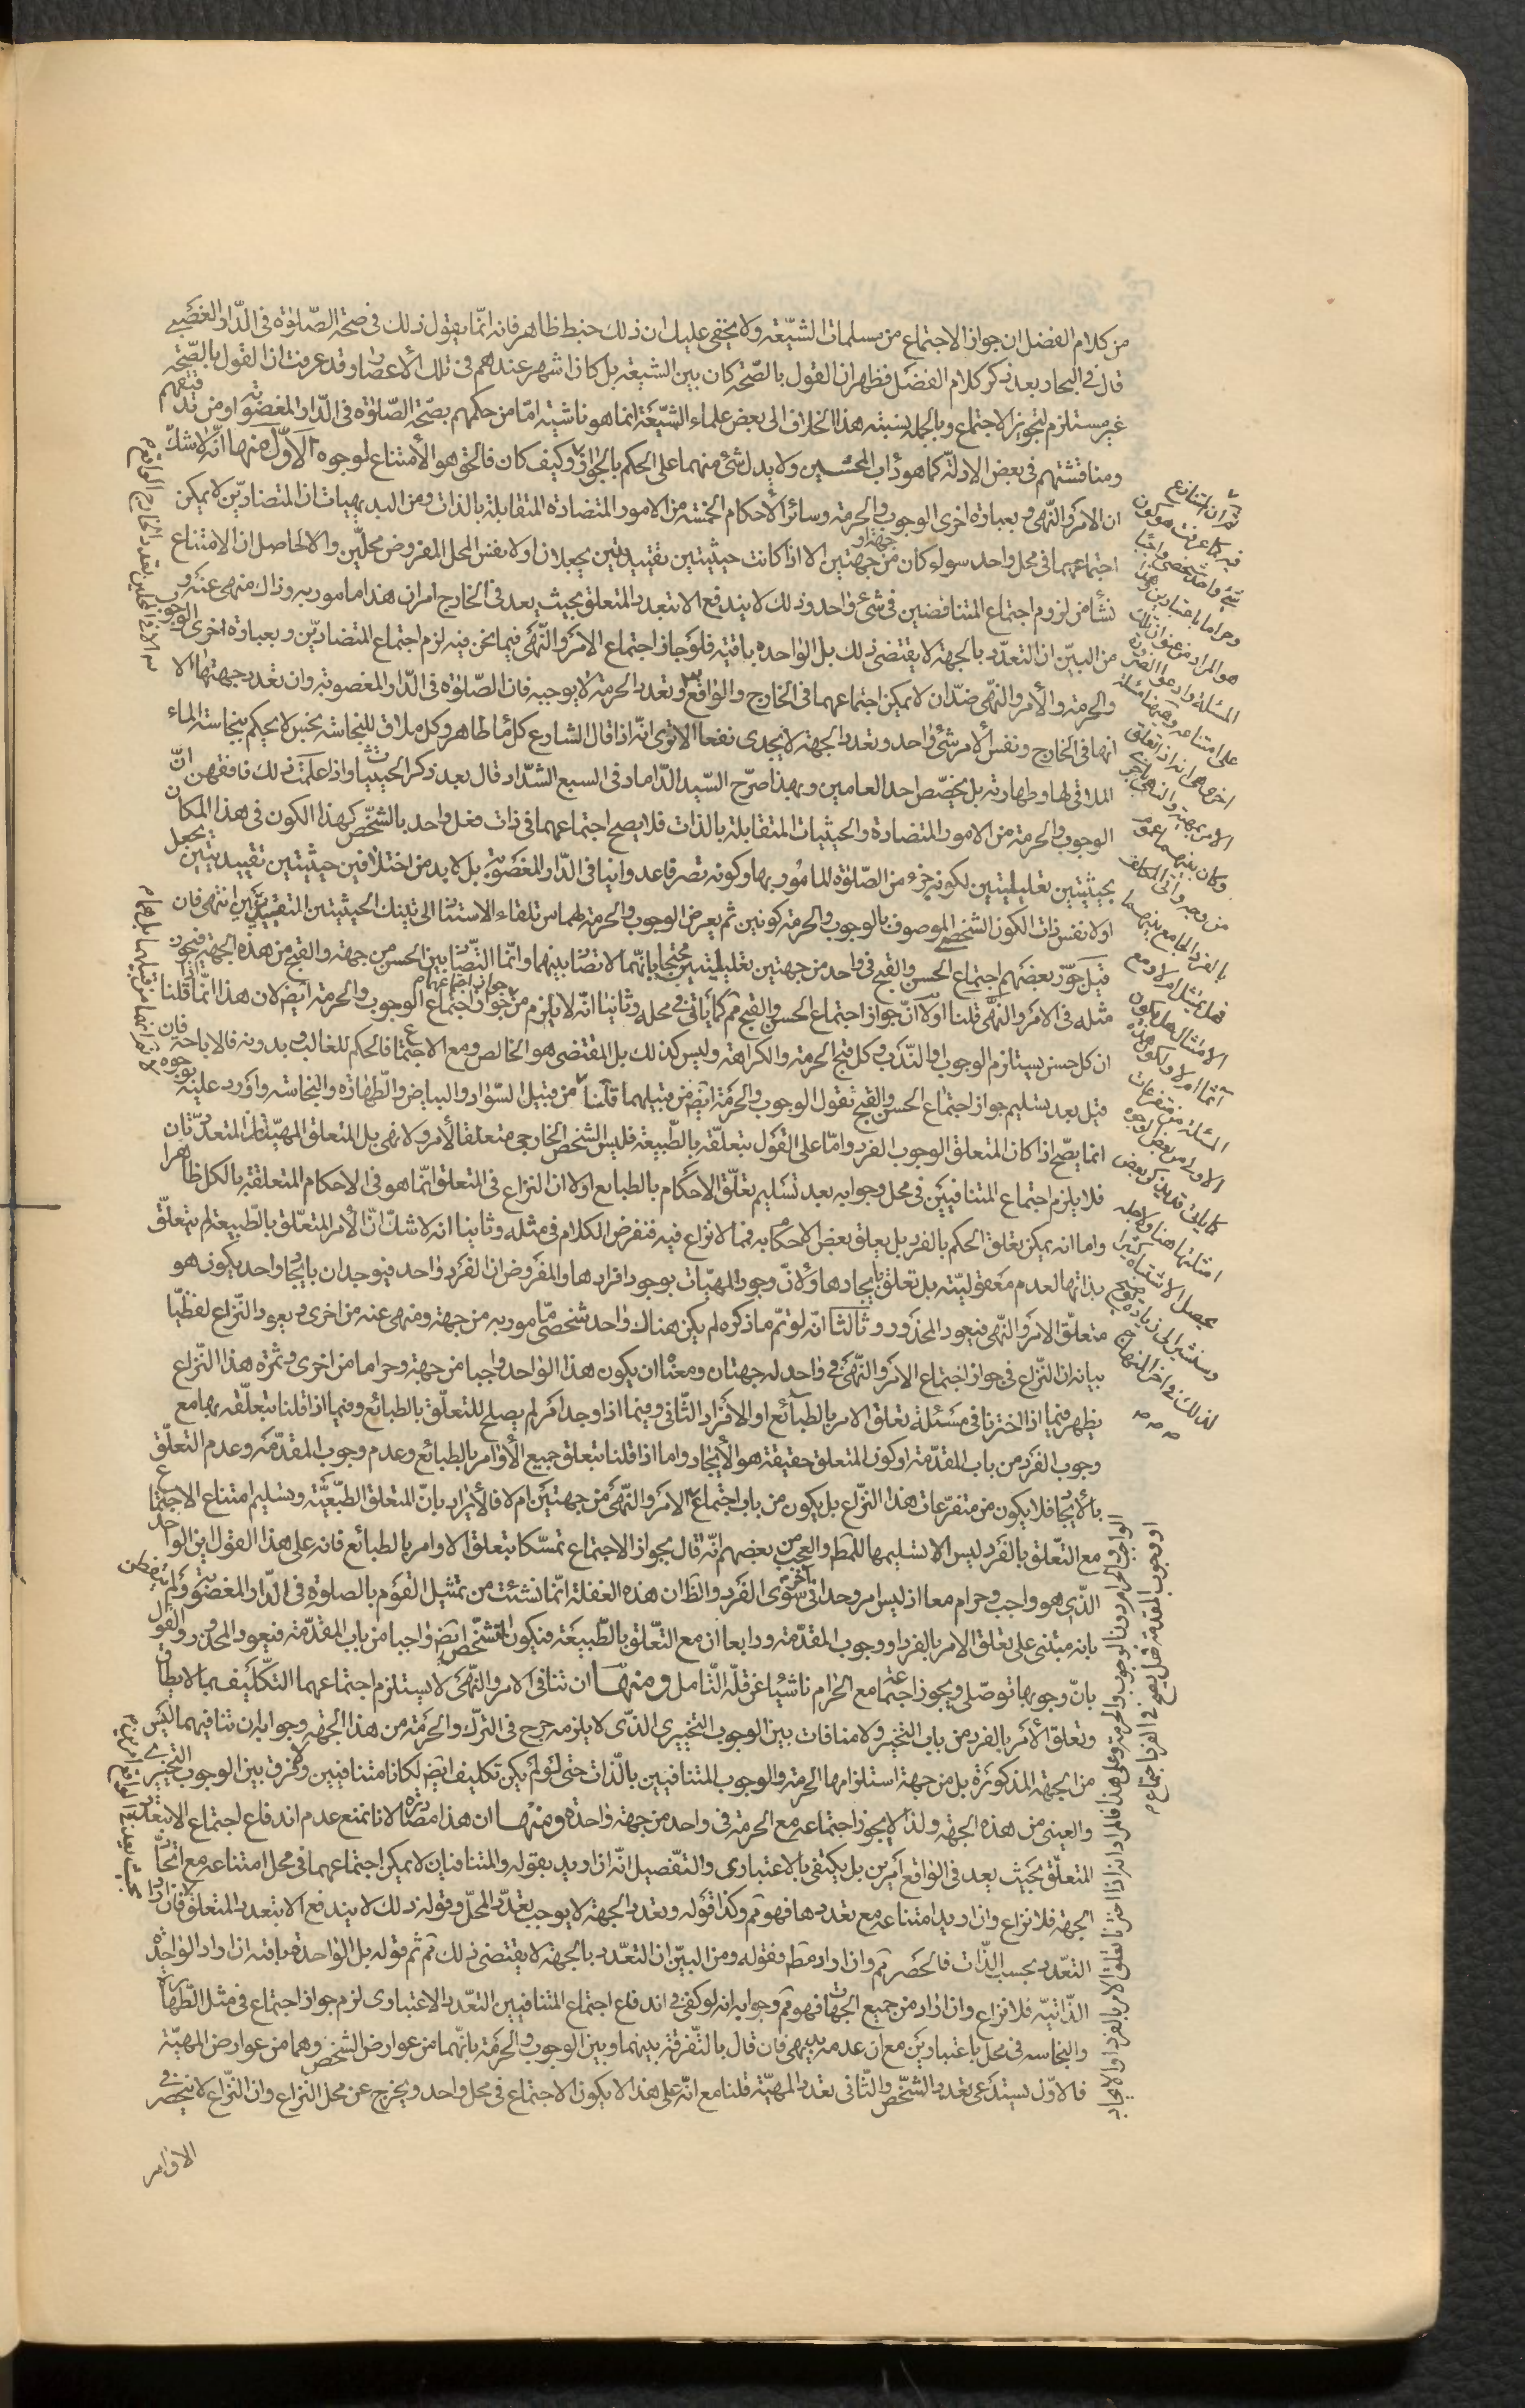 من كلام الفضل ان جواز الاجتماع من مسلمات الشيعة ولا يخفى عليك ان ذلك خبط ظاهر فانه انما يقول ذلك فى صحة الصلوة فى الدار الغصبى
قال فى البحار بعد ذكر كلام الفضل فظهر ان القول بالصحة كان بين الشيعة بل كان اشهر عندهم فى تلك الاعصار وقد عرفت ان القول بالصحة
غير مستلزم لتجويز الاجتماع وبالجملة نسبة هذا الخلاف الى بعض علماء الشيعة انما هو ناشية اما من حكمهم بصحة الصلوة فى الدار المغصوبة او من قدحهم
ومناقشتهم فى بعض الادلة كما هو داب المحصلين ولا يدل شئ منهما على الحكم بالجواز وكيف كان فالحق هو الامتناع لوجوه الاول منها انه لا شك
ان الامر والنهى وبعبارة اخرى الوجوب والحرمة وسائر الاحكام الخمسة من الامور المتضادة المتقابلة بالذات ومن البديهيات ان المتضادين لا يمكن
اجتماعهما فى محل واحد سواء كان من جهتين الا اذا كانت حيثيتين تقييديتين يجعلان اولا نفس المحل المفروض محلين والا لحاصل ان الامتناع
نشأ من لزوم اجتماع المتناقضين فى شئ واحد وذلك لا يندفع الا بتعدد المتعلق بحيث يعد فى الخارج امران هذا مامور به وذاك منهى عنه و
من البين ان التعدد بالجهة لا يقتضى ذلك بل الواحدة باقية فلو جاز اجتماع الامر والنهى فيما نحن فيه لزم اجتماع المتضادين وبعبارة اخرى الوجوب
والحرمة والأمر والنهى ضدان لا يمكن اجتماعهما فى الخارج والواقع وتعدد الحرمة لا يوجبه فان الصلوة فى الدار المغصوبة وان تعدد جهتها الا
انها فى الخارج ونفس الأمر شئ واحد وتعدد الجهة لا يجدى نفعا الا ترى انه اذا قال الشارع كل ماء طاهر وكل ملاق للنجاسة نجس لا يحكم بنجاسة الماء
الملاقى لها وطهارته بل يخصص احد العامين وبهذا صرح السيد الداماد فى السبع الشداد قال بعد ذكر الحيثيات واذا علمت ذلك فافقهن ان
الوجوب والحرمة من الامور المتضادة والحيثيات المتقابلة بالذات فلا يصح اجتماعهما فى ذات فعل واحد بالشخص كهذا الكون فى هذا المكان
بحيثيتين تعليليتين لكونه جزء من الصلوة المأمور بها وكونه تصرفا عدوانيا فى الدار المغصوبة بل لا بد من اختلاف حيثيتين تقييديتين يجعل
اولا نفس ذات الكون الشخصى الموصوف بالوجوب والحرمة كونين ثم يعرض الوجوب والحرمة لهما من تلقاء الاستناد الى تينك الحيثيتين التقييديتين انتهى فان
قيل جوز بعضهم اجتماع الحسن والقبح فى واحد من جهتين تعليليتين محتجا بانهما لا تضاد بينهما وانما التضاد بين الحسن من جهة والقبح من هذه الجهة فيجوز
مثله فى الامر والنهى قلنا اولا ان جواز اجتماع الحسن والقبح مم كما ياتى فى محله وثانيا انه لا يلزم من جواز اجتماعهما جواز اجتماع الوجوب والحرمة ايض لان هذا انما قلنا
ان كل حسن يستلزم الوجوب او الندب وكل قبح الحرمة والكراهة وليس كذلك بل المقتضى هو الخالص ومع الاجتماع فالحكم للغالب وبدونه فالاباحة فان
قيل بعد تسليم جواز اجتماع الحسن والقبح نقول الوجوب والحرمة ايض من قبيلهما قلنا من قبيل السواد والبياض والطهارة والنجاسة واورد عليه بوجوه
انما يصح اذا كان المتعلق الوجوب الفرد واما على القول بتعلقه بالطبيعة فليس الشخص الخارجى متعلقا لأمر ولا نهى بل المتعلق المهيتان المتعددتان
فلا يلزم اجتماع المتنافيين فى محل وجوابه بعد تسليم تعلق الاحكام بالطبايع اولا ان النزاع فى المتعلق انما هو فى الاحكام المتعلقة بالكل ظاهرا
واما انه يمكن تعلق الحكم بالفرد بل يعلق بعض الاحكام به فمما لا نزاع فيه فنفرض الكلام فى مثله وثانيا انه لا شك ان الأمر المتعلق بالطبيعة لم يتعلق
بذاتها لعدم معقوليته بل تعلق بايجادها ولان وجود المهيات بوجود افرادها والمفروض ان الفرد واحد فيوجدان بايجاد واحد يكون هو
متعلق الامر والنهى فيعود المحذور وثالثا انه لو تم ما ذكره لم يكن هناك واحد شخصى مامور به من جهة ومنهى عنه من اخرى ويعود النزاع لفظيا
بيانه ان النزاع فى جواز اجتماع الامر والنهى فى واحد له جهتان ومعناه ان يكون هذا الواحد واجبا من جهة وحراما من اخرى وثمرة هذا النزاع
يظهر فيما اذا اخترنا فى مسئلة تعلق الامر بالطبائع او الافراد الثانى وفيما اذا وجد امر لم يصلح للتعلق بالطبائع وفيما اذا قلنا بتعلقه بها مع
وجوب الفرد من باب المقدمة او كون المتعلق حقيقة هو الأيجاد واما اذا قلنا بتعلق جميع الأوامر بالطبائع وعدم وجوب المقدمة وعدم التعلق
بالأيجاد فلا يكون من متفرعات هذا النزاع بل يكون من باب اجتماع الامر والنهى من جهتين ام لا فالأيراد بان المتعلق الطبيعة وتسليم امتناع الاجتماع
مع التعلق بالفرد ليس الا تسليما للمط والعجب من بعضهم انه قال بجواز الاجتماع تمسكا بتعلق الاوامر بالطبائع فانه على هذا القول اين الواحد
الذى هو واجب وحرام معا اذ ليس امر وحدانى سوى الفرد والظ ان هذه الغفلة انما نشئت من تمثيل القوم بالصلوة فى الدار المغصوبة ولم يتفطن
بانه مبتنى على تعلق الامر بالفرد او وجوب المقدمة ورابعا ان مع التعلق بالطبيعة فيكون الشخص ايض واجبا من باب المقدمة فيعود المحذور والقول
بان وجوبها توصلى ويجوز اجتماعه مع الحرام ناشئا عن قلة التامل ومنها ان تنافى الامر والنهى لاستلزام اجتماعهما التكليف بما لا يطاق
وتعلق الأمر بالفرد من باب التخيير ولا منافات بين الوجوب التخييرى الذى لا يلزمه حرج فى الترك والحرمة من هذا الجهة وجوابه ان تنافيهما ليس
من الجهة المذكورة بل من جهة استلزامها الحرمة والوجوب المتنافيين بالذات حتى لو لم يكن تكليف ايض لكانا متنافيين ولا فرق بين الوجوب التخييرى
والعينى من هذه الجهة ولذا لا يجوز اجتماعه مع الحرمة فى واحد من جهة واحدة ومنها ان هذا مصادرة لانا نمنع عدم اندفاع اجتماع الا بتعدد
المتعلق بحيث يعد فى الواقع امرين بل يكتفى بالاعتبارى والتفصيل انه ان اريد بقوله والمتنافيان لا يمكن اجتماعهما فى محل امتناعه مع اتحاد
الجهة فلا نزاع وان اريد امتناعه مع تعددها فهو مم وكذا قوله وتعدد الجهة لا يوجب تعدد المحل وقوله ذلك لا يندفع الا بتعدد المتعلق فان اراد
التعدد بحسب الذات فالحصر مم وان اراد مط فقوله ومن البين ان التعدد بالجهة لا يقتضى ذلك مم ثم قوله بل الواحدة باقية ان اراد الواحدة
الذاتية فلا نزاع وان اراد من جميع الجهات فهو مم وجوابه انه لو كفى فى اندفاع اجتماع المتنافيين التعدد الاعتبارى لزم جواز اجتماع فى مثل الطهارة
والنجاسة فى محل باعتبارين مع ان عدمه بديهى فان قال بالتفرقة بينهما وبين الوجوب والحرمة بانهما من عوارض الشخص وهما من عوارض المهية
فالاول يستدعى تعدد الشخص والثانى تعدد المهية قلنا مع انه على هذا لا يكون الاجتماع فى محل واحد ويخرج عن محل النزاع وان النزاع لا ينحصر فى
الاوامر
ثم ان النزاع
فيه كما عرفت هو كون
شئ واحد شخصى واجبا
وحراما باعتبارين وهذا
هو المراد من عنوان تلك
المسئلة وادعوا الضرورة
على امتناعه وهيهنا مسئلة
اخرى هى انه اذا تعلق
الامر بجهة والنهى باخرى
وكان بينهما عموم
من وجه واتى المكلف
بالفرد الجامع بينهما
فهل يمتثل ام لا ومع
الامتثال هل يكون
آثما ام لا ولكون هذه
المسئلة من متفرعات
الاولى من بعض الوجوه
كما ياتى قد يذكر بعض
امثلتها هنا ولاجله
يحصل الاشتباه كثيرا
وسنشير الى زيادة توضيح
لذلك فى اخر المنهاج